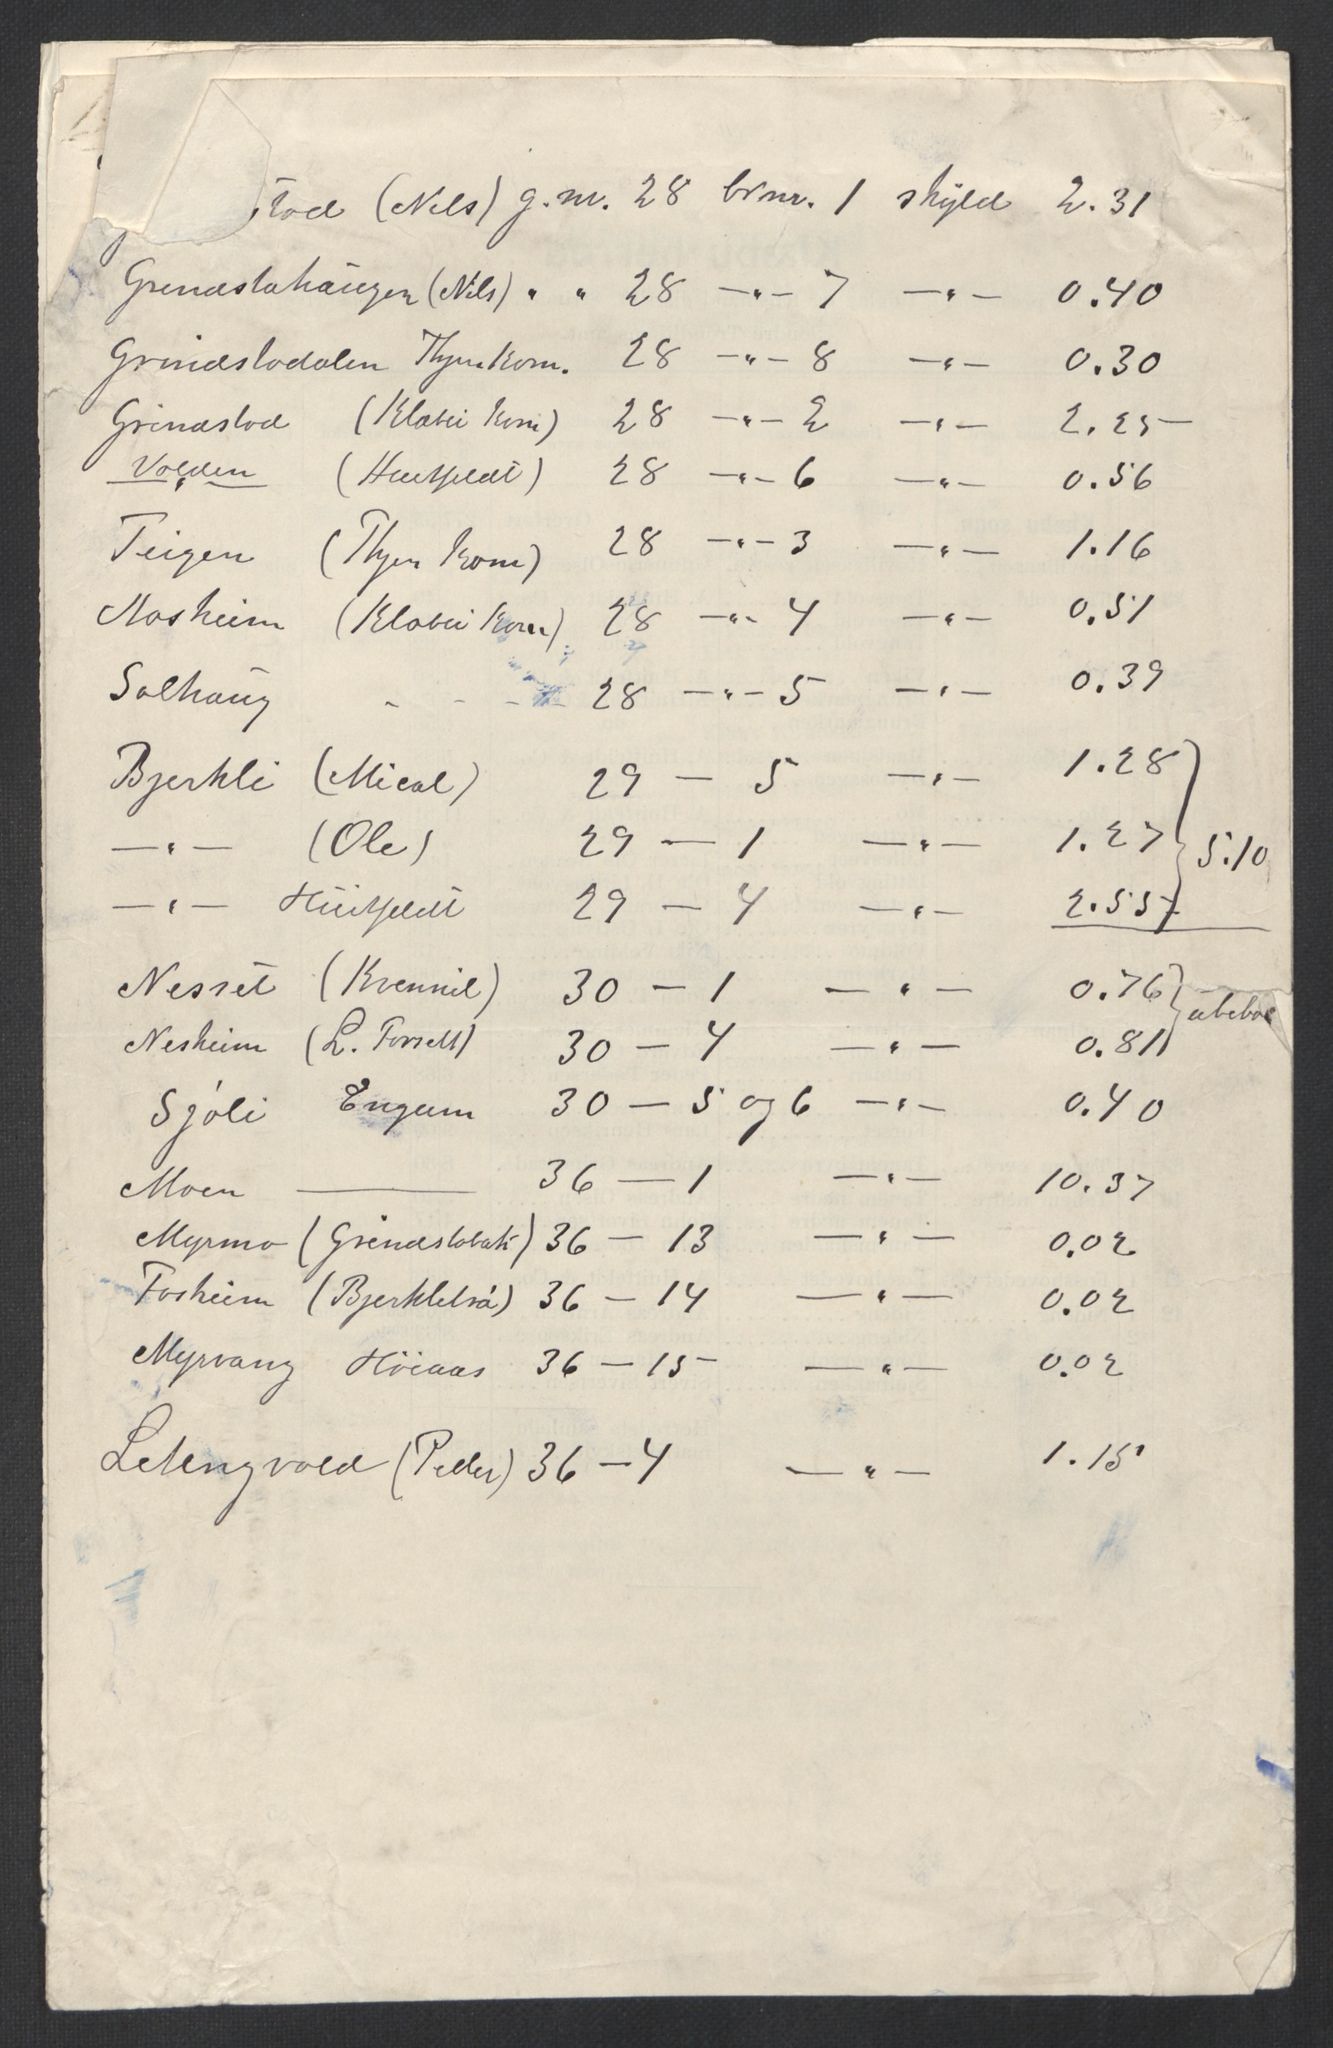 stod (Nils) g.nr. 28 brnr. 1 skyld 2.31
Grindstahaugen (Nils) " " 28 —"— 7 —"— 0.40
Grindstodalen Thyra kom. 28 —"— 8 —"— 0.30
Grindstod (Klæbu kom) 28 —"— 2 —"— 2.25
Volden (Huitfeldt) 28 —"— 6 —"— 0.56
Teigen (Thyra kom) 28 —"— 3 —"— 1.16
Mosheim (Klæbu kom) 28 —"— 4 —"— 0.51
Solhaug - - - 28 —"— 5 —"— 0.39
Bjerkli (Mical) 29 — 5 —"— 1.28
—"— (Ole) 29 — 1 —"— 1.27 } 5.10
—"— Huitfeldt 29 — 4 —"— 2.55
Nesset (Kvennil) 30 — 1 —"— 0.76
Nesheim (L. Forsett) 30 — 4 —"— 0.81
Sjöli Engum 30 — 5 og 6 —"— 0.40
Moen — 36 — 1 —"— 10.37
Myrmo (Grindstobak) 36 — 13 —"— 0.02
Fosheim (Bjerklitrå) 36 — 14 —"— 0.02
Myrvang Höiaas 36 — 15 —"— 0.02
Letengvold (Peder) 36 — 4 —"— 1.15